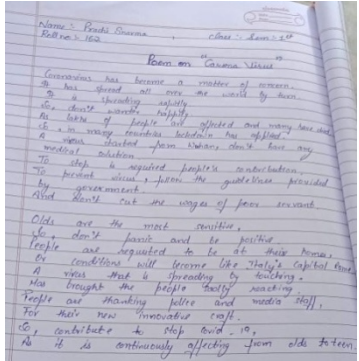 Name :- Preeti Sharma
Roll no :- 162, class :- Sem - 1st
Poem on "Corona Virus"
Coronavirus has become a matter of concern.
It has spread all over the world by turn.
It is spreading rapidly
So, don't wander happily,
As lakhs of people are affected and many have died
So, in many countries lockdown has applied.
A virus started from Wuhan, don't have any
medical solution
To stop is required people's contribution.
To prevent virus, follow the guidelines provided
by government.
And don't cut the wages of poor servant.
Olds are the most sensitive,
So, don't panic and be positive
People are requested to be at their homes,
Or conditions will become like Italy's capital Rome.
A virus that is spreading by touching.
Has brought the people reacting.
People are thanking police and media staff,
For their new innovative craft.
So, contribute to stop covid-19,
As it is continuously affecting from olds to teen.